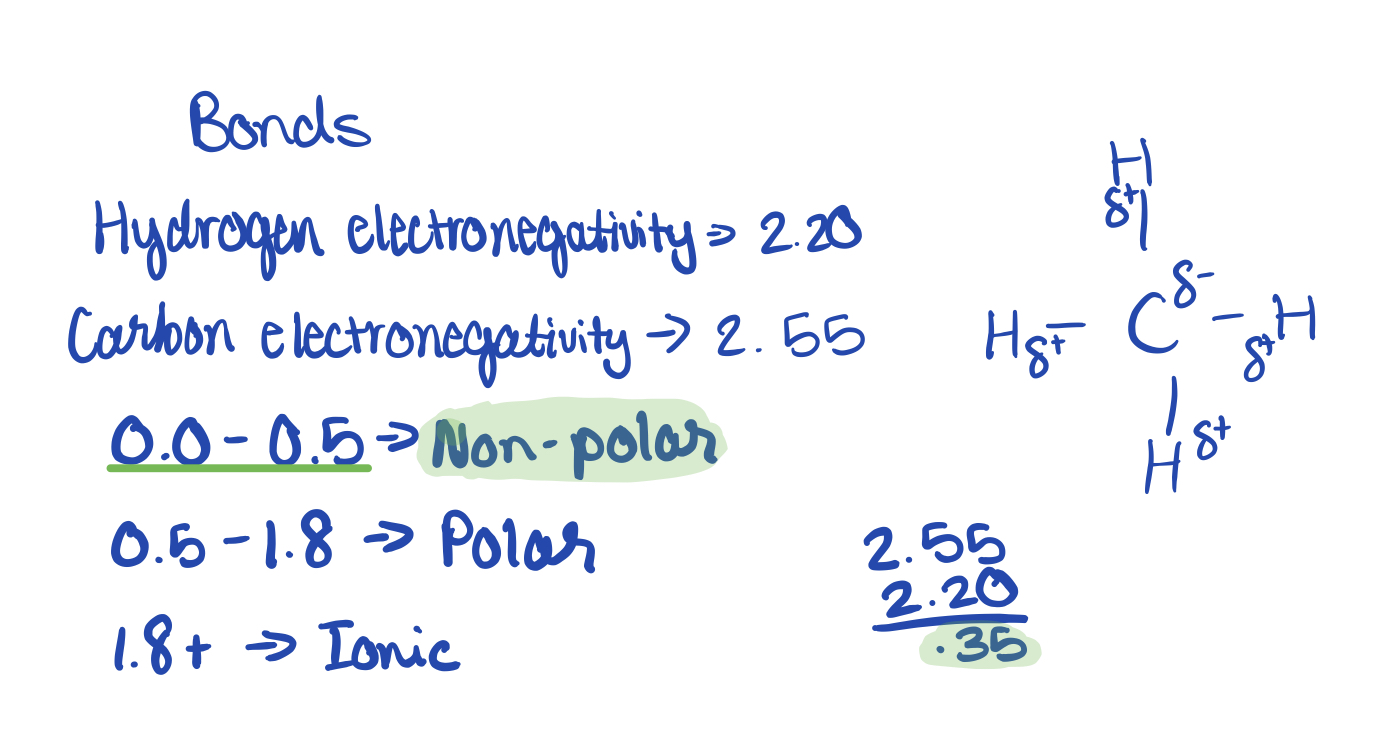 Bonds
Hydrogen electronegativity → 2.20
Carbon electronegativity → 2.55
0.0 - 0.5 → Non-polar
0.5 - 1.8 → Polar
1.8+ → Ionic
H
δ+
C δ-
H δ+
H δ+
H δ+
2.55
2.20
.35